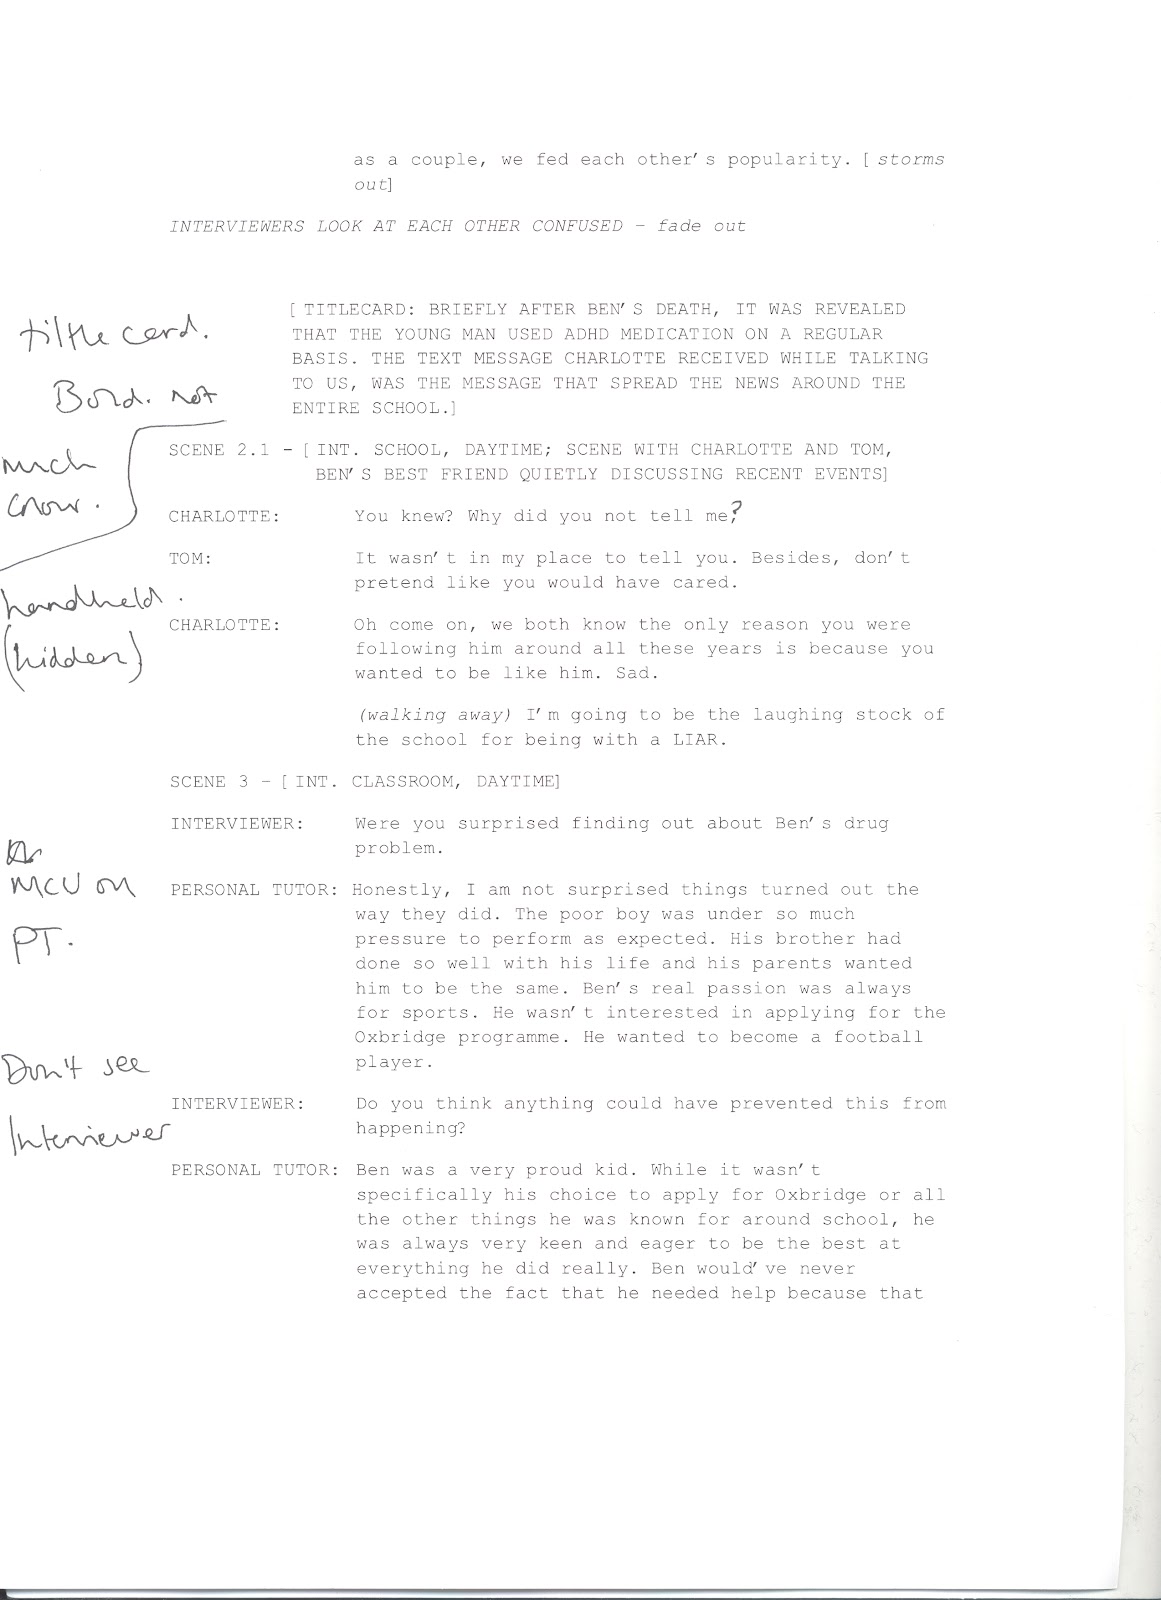 as a couple, we fed each other's popularity. [storms
out]
INTERVIEWERS LOOK AT EACH OTHER CONFUSED – fade out
[TITLECARD: BRIEFLY AFTER BEN'S DEATH, IT WAS REVEALED
THAT THE YOUNG MAN USED ADHD MEDICATION ON A REGULAR
BASIS. THE TEXT MESSAGE CHARLOTTE RECEIVED WHILE TALKING
TO US, WAS THE MESSAGE THAT SPREAD THE NEWS AROUND THE
ENTIRE SCHOOL.]
tiltle card.
Bold. not
much
SCENE 2.1 – [INT. SCHOOL, DAYTIME; SCENE WITH CHARLOTTE AND TOM,
BEN'S BEST FRIEND QUIETLY DISCUSSING RECENT EVENTS]
CHARLOTTE: You knew? Why did you not tell me?
TOM: It wasn't in my place to tell you. Besides, don't
pretend like you would have cared.
handheld.
(hidden)
CHARLOTTE: Oh come on, we both know the only reason you were
following him around all these years is because you
wanted to be like him. Sad.
(walking away) I'm going to be the laughing stock of
the school for being with a LIAR.
SCENE 3 – [INT. CLASSROOM, DAYTIME]
INTERVIEWER: Were you surprised finding out about Ben's drug
problem.
MCU on
PT.
PERSONAL TUTOR: Honestly, I am not surprised things turned out the
way they did. The poor boy was under so much
pressure to perform as expected. His brother had
done so well with his life and his parents wanted
him to be the same. Ben's real passion was always
for sports. He wasn't interested in applying for the
Oxbridge programme. He wanted to become a football
player.
Don't see
Interviewer
INTERVIEWER: Do you think anything could have prevented this from
happening?
PERSONAL TUTOR: Ben was a very proud kid. While it wasn't
specifically his choice to apply for Oxbridge or all
the other things he was known for around school, he
was always very keen and eager to be the best at
everything he did really. Ben would've never
accepted the fact that he needed help because that